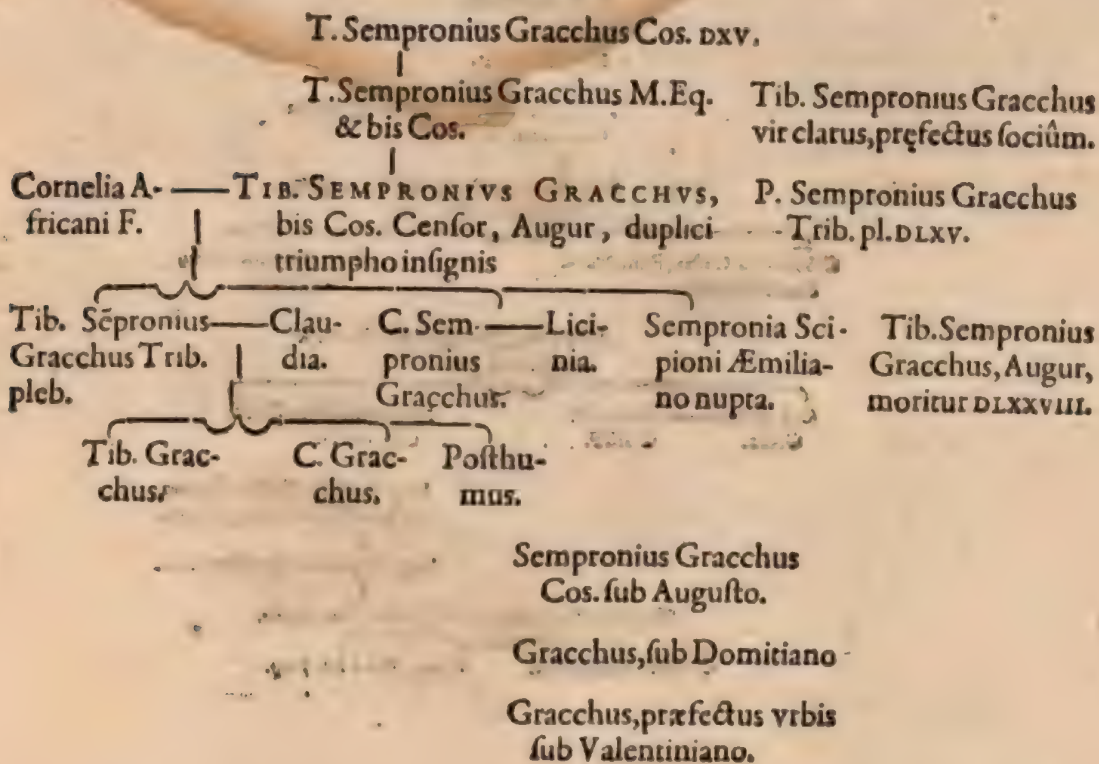 T. Sempronius Gracchus Cos. DXV.
T. Sempronius Gracchus M. Eq.
& bis Cos.
Tib. Sempronius Gracchus
vir clarus, pręfectus ſociûm.
Cornelia A-
fricani F.
TIB. SEMPRONIVS GRACCHVS,
bis Cos. Cenſor, Augur, duplici
triumpho inſignis
P. Sempronius Gracchus
Trib. pl. DLXV.
Tib. Sēpronius
Gracchus Trib.
pleb.
Clau-
dia.
C. Sem-
pronius
Gracchus.
Lici-
nia.
Sempronia Sci-
pioni Æmilia-
no nupta.
Tib. Sempronius
Gracchus, Augur,
moritur DLXXVIII.
Tib. Grac-
chus.
C. Grac-
chus.
Poſthu-
mus.
Sempronius Gracchus
Cos. ſub Auguſto.
Gracchus, ſub Domitiano
Gracchus, præfectus vrbis
ſub Valentiniano.